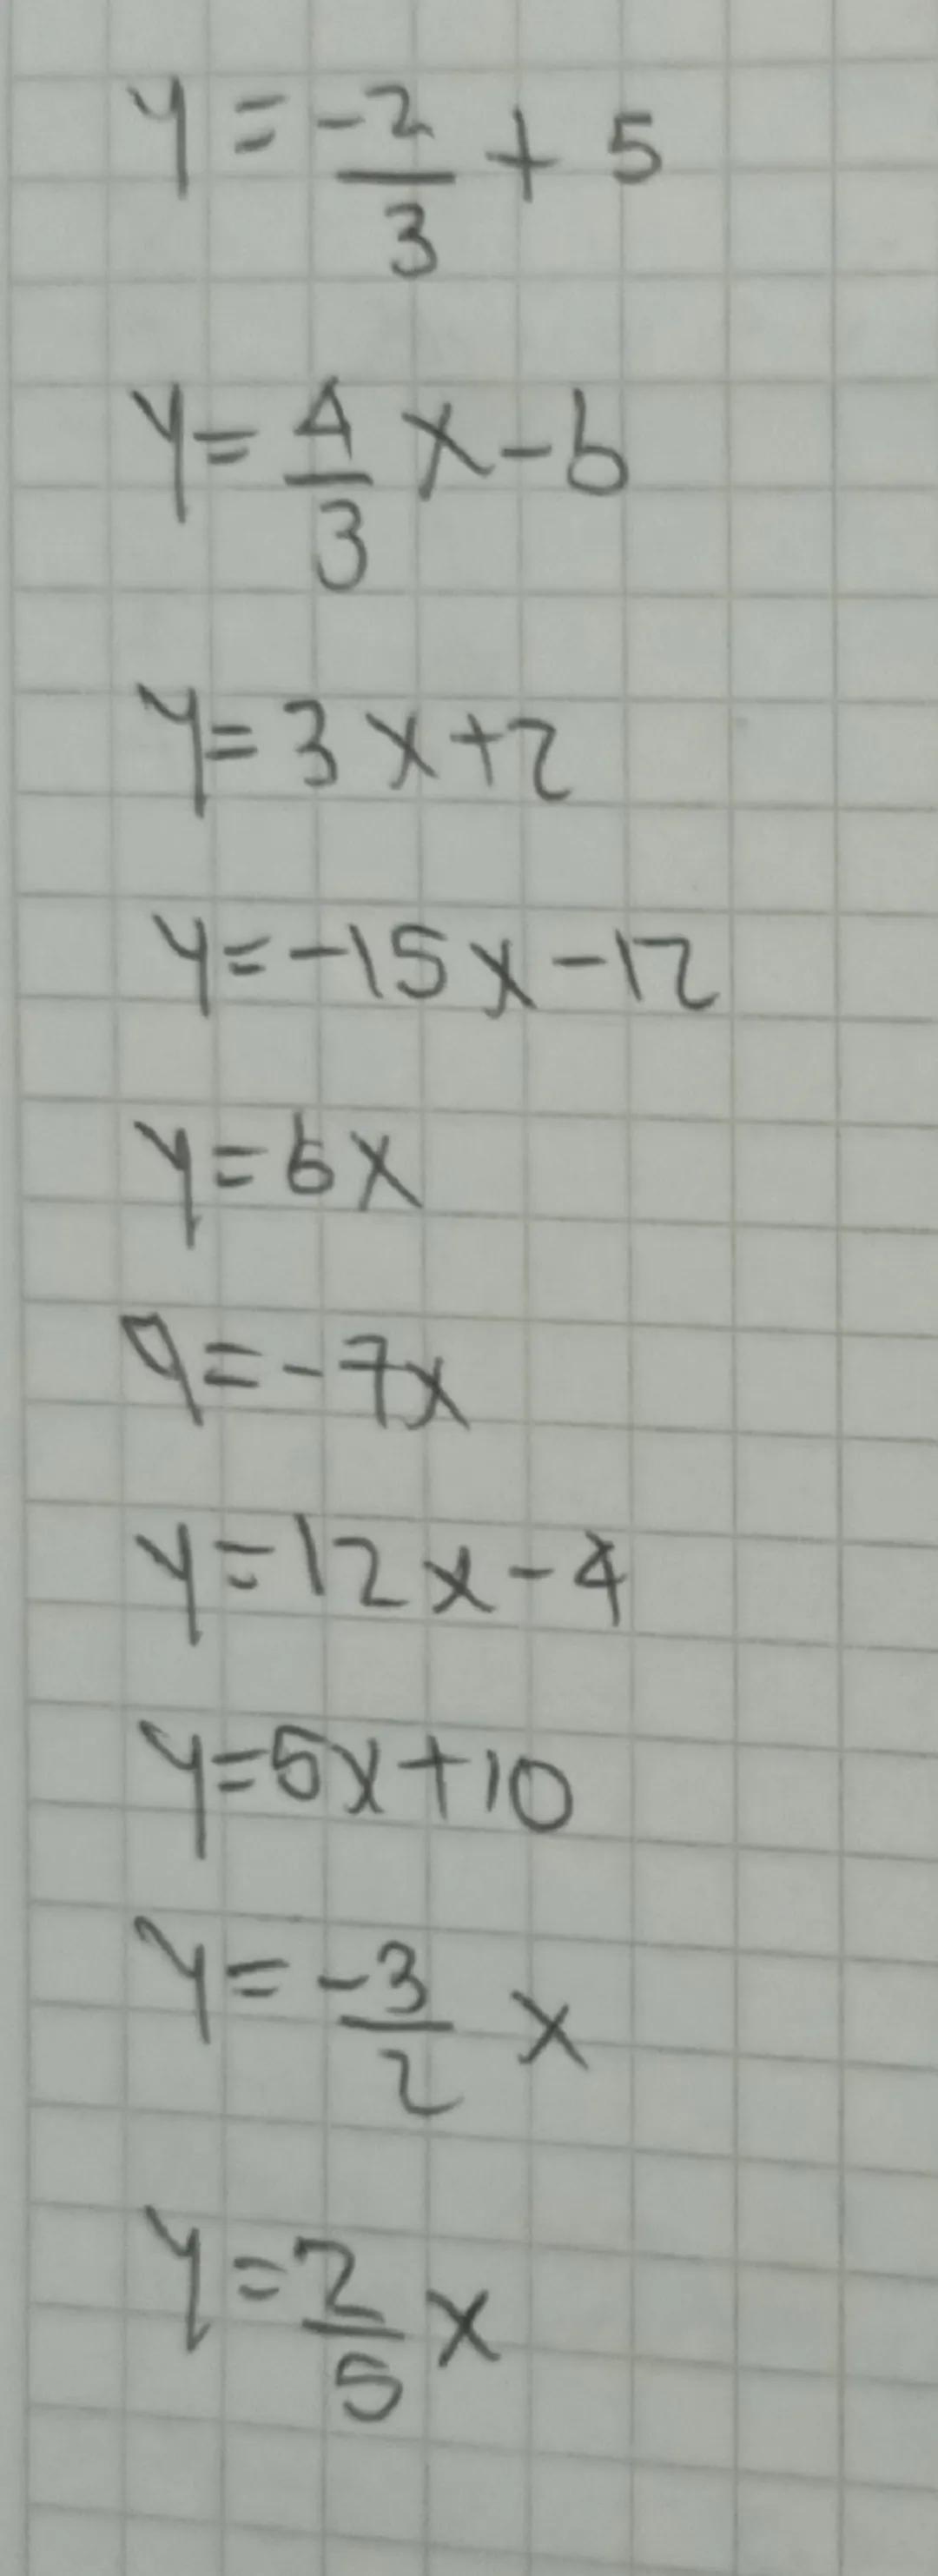 y = -2/3 + 5
y = 4/3 x - 6
y = 3x + 2
y = -15x - 12
y = 6x
y = -7x
y = 12x - 4
y = 5x + 10
y = -3/2 x
y = 2/5 x